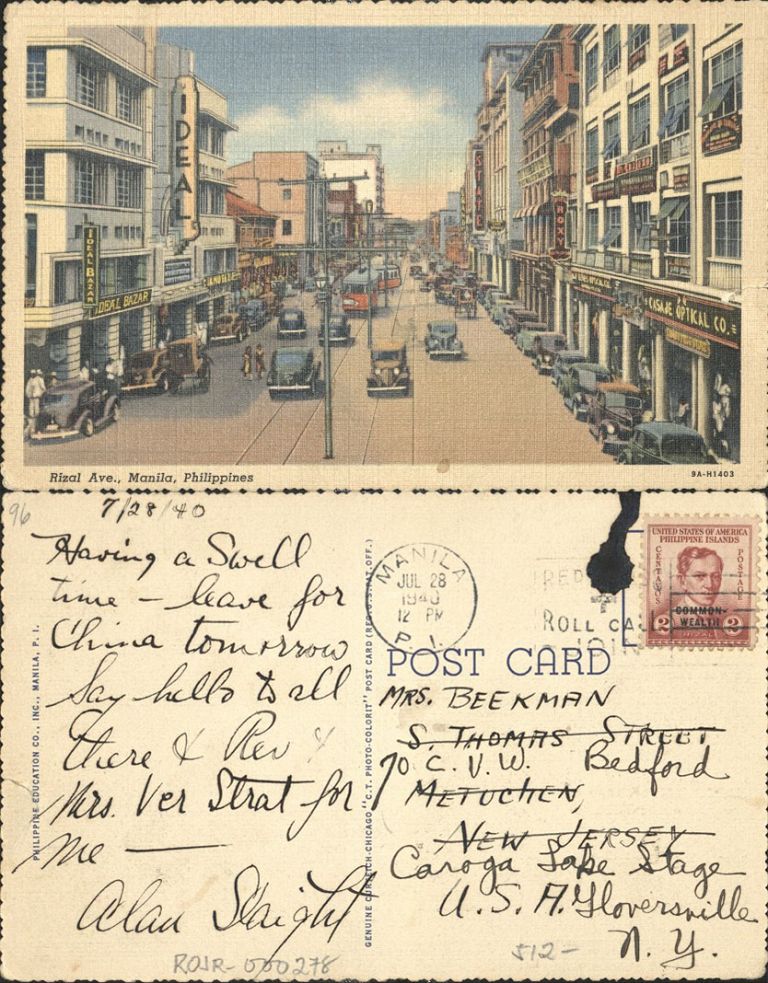 IDEAL
IDEAL BAZAR
IDEAL BAZAR
STATE
ROXY
CASAJE OPTICAL CO.
Rizal Ave., Manila, Philippines
9A-H1403
96
7/28/40
Having a Swell
time – leave for
China tomorrow
Say hello to all
there & Rev &
Mrs. Ver Strat for
me —
Alan Slaight
ROJR-000278
PHILIPPINE EDUCATION CO., INC., MANILA, P. I.
GENUINE CURTEICH-CHICAGO "C.T. PHOTO-COLORIT" POST CARD (REG. U.S. PAT. OFF.)
MANILA
JUL 28
1940
12 PM
P. I.
RED
ROLL CA
JOIN
UNITED STATES OF AMERICA
PHILIPPINE ISLANDS
CENTAVOS
POSTAGE
COMMON-
WEALTH
2 RIZAL 2
POST CARD
MRS. BEEKMAN
S. THOMAS STREET
% C. V. W. Bedford
METUCHEN,
NEW JERSEY
Caroga Lake Stage
U. S. A. Gloversville
N. Y.
512-